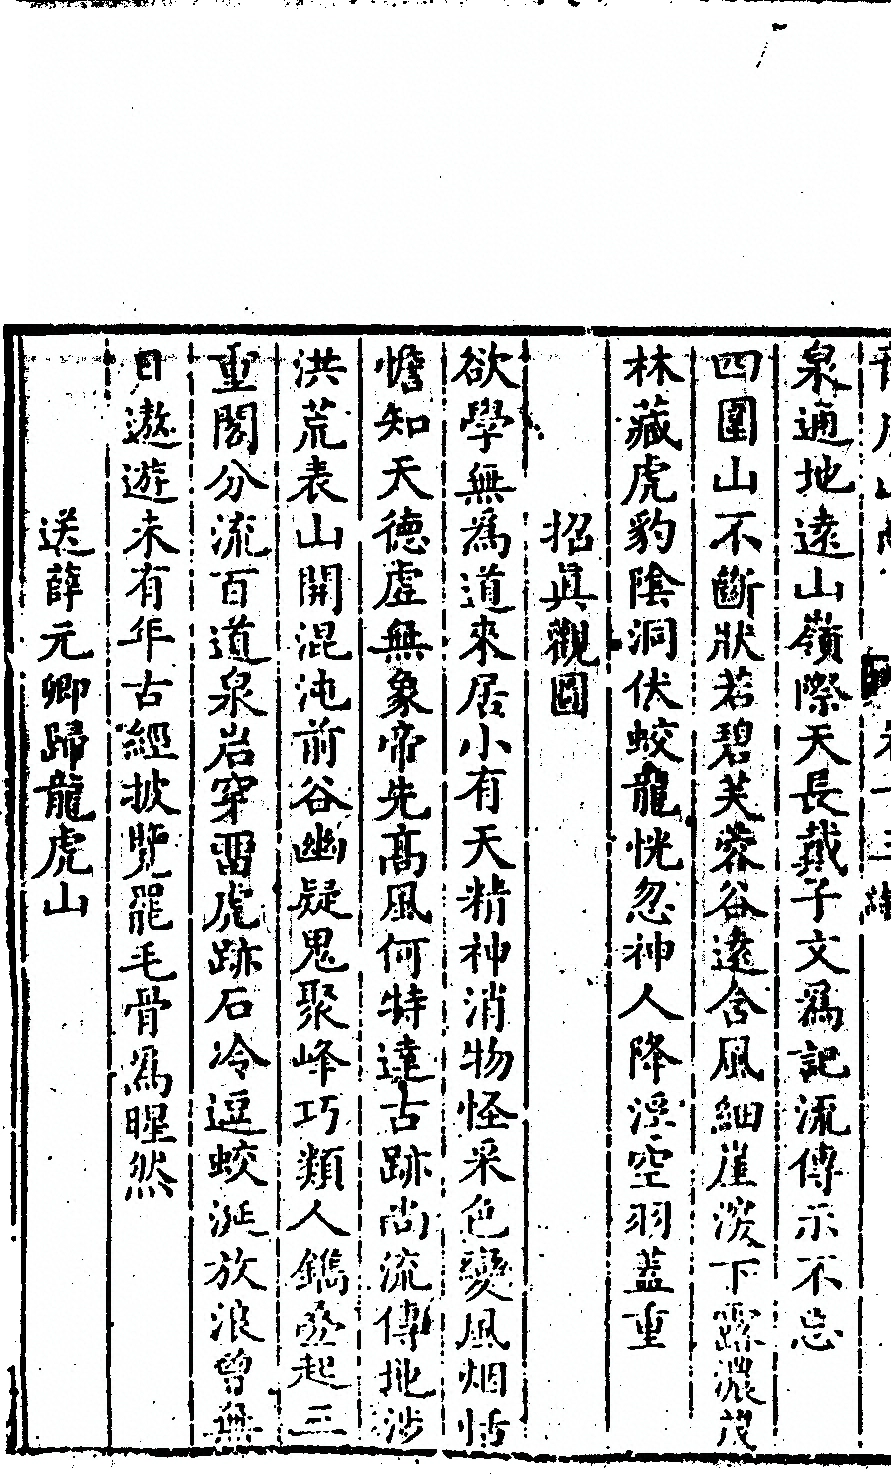 泉通地遠山嶺際天長戴子文爲記流傳示不忘
四圍山不斷狀若碧芙蓉谷遠含風細崖深下露濃茂
林藏虎豹陰洞伏蛟龍恍忽神人降浮空羽蓋重
招眞觀圖
欲學無爲道來居小有天精神消物怪采色變風烟恬
憺知天德虛無象帝先高風何特達古跡尚流傳地涉
洪荒表山開混沌前谷幽疑鬼聚峰巧類人鐫疊起三
重閣分流百道泉岩穿雷虎跡石冷逗蛟涎放浪曾無
日遨遊未有年古經披覽罷毛骨爲惺然
送薛元卿歸龍虎山